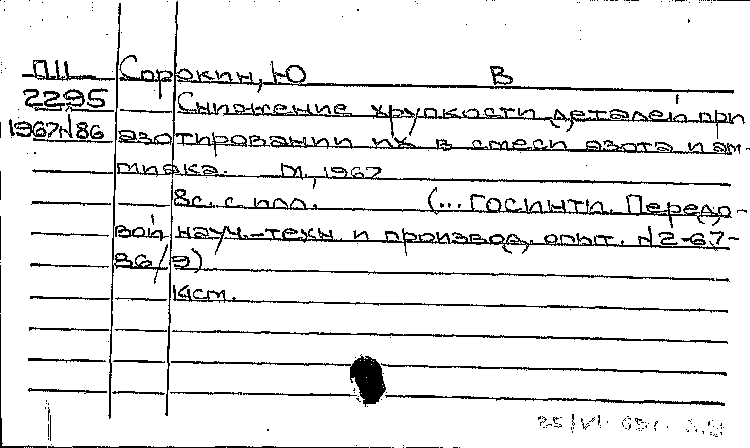 ПII Сорокин, Ю В
2295 Снижение хрупкости деталей при
1967 N86 азотировании их в смеси азота и ам-
миака. М, 1967
8с. с илл. (...ГОСИНТИ. Передо-
вой науч.-техн. и производ. опыт. N2-67-
86/9)
14см.